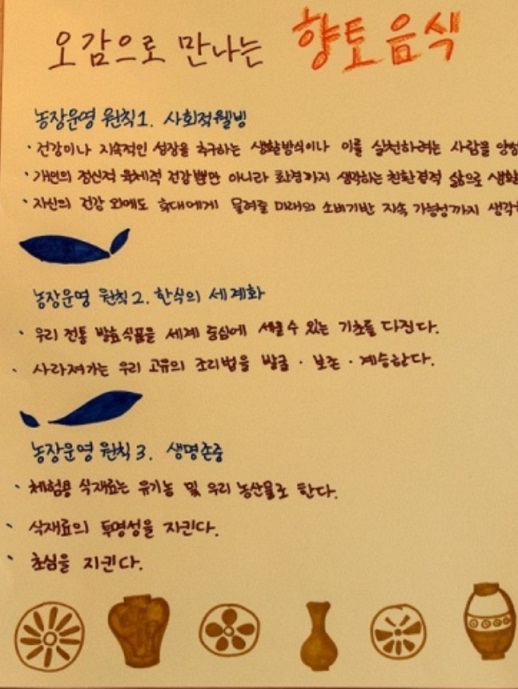 오감으로 만나는 향토음식
농장운영 원칙1. 사회적웰빙
· 건강이나 지속적인 성장을 추구하는 생활방식이나 이를 실천하려는 사람을
· 개인의 정신적 육체적 건강뿐만 아니라 환경까지 생각하는 친환경적 삶으로
· 자신의 건강 외에도 후대에게 물려줄 미래의 소비기반 지속 가능성까지
농장운영 원칙2. 한식의 세계화
· 우리 전통 발효식품을 세계 중심에 세울 수 있는 기초를 다진다.
· 사라져가는 우리 고유의 조리법을 발굴 · 보존 · 계승한다.
농장운영 원칙3. 생명존중
· 체험용 식재료는 유기농 및 우리 농산물로 한다.
· 식재료의 투명성을 지킨다.
· 초심을 지킨다.